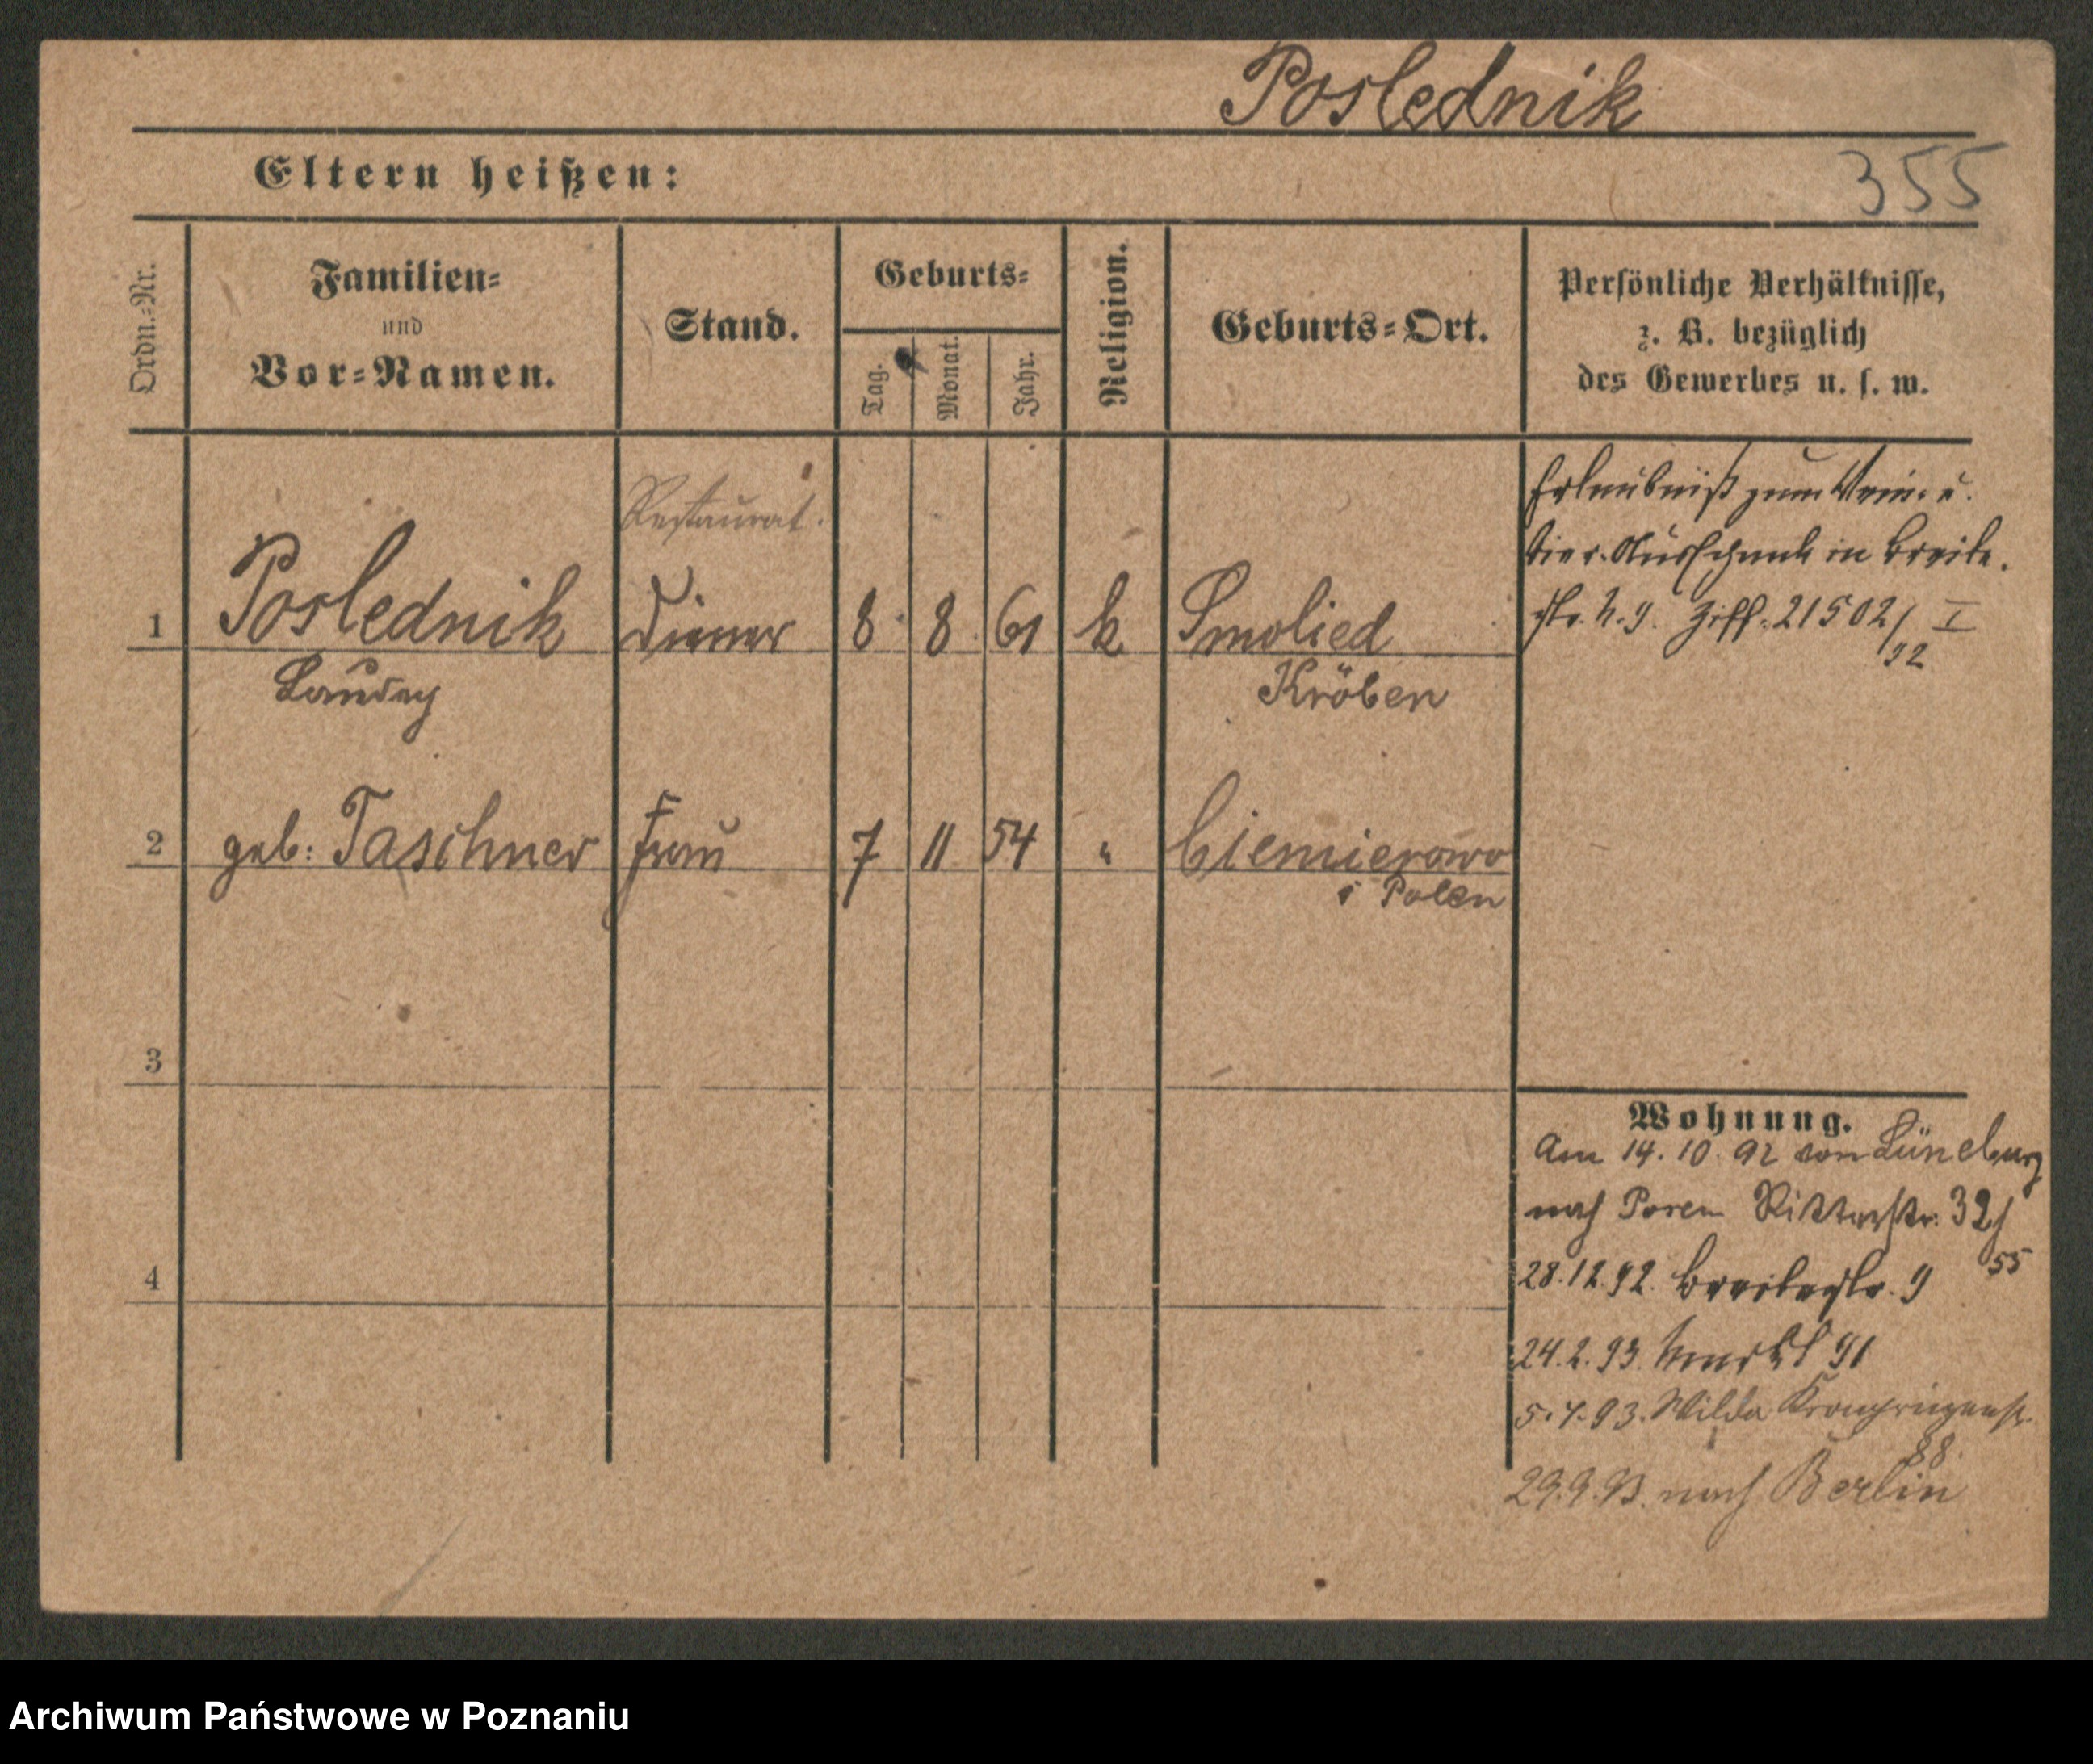 Poslednik
Eltern heißen:
355
Ordn.-Nr.
Familien-
und
Vor-Namen.
Stand.
Geburts-
Tag.
Monat.
Jahr.
Religion.
Geburts-Ort.
Persönliche Verhältnisse,
z. B. bezüglich
des Gewerbes u. s. w.
Restaurat.
1 Poslednik Diener 8 8 61 k Smolied
Kröben
Erlaubniß zum Wein- u.
Bier-Ausschank in Breite-
str. N. 9. Ziff. 21502/92 I
2 geb: Taschner Frau 7 11 54 " Ciemierowo
i Polen
3
4
Wohnung.
Am 14.10.92 von Lüneburg
nach Posen Ritterstr. 32/
55
28.12.92. Breitestr. 9
24.2.93. Markt 91
5.4.93. Wilda Kronprinzenstr.
88.
29.9.93. nach Berlin
Archiwum Państwowe w Poznaniu